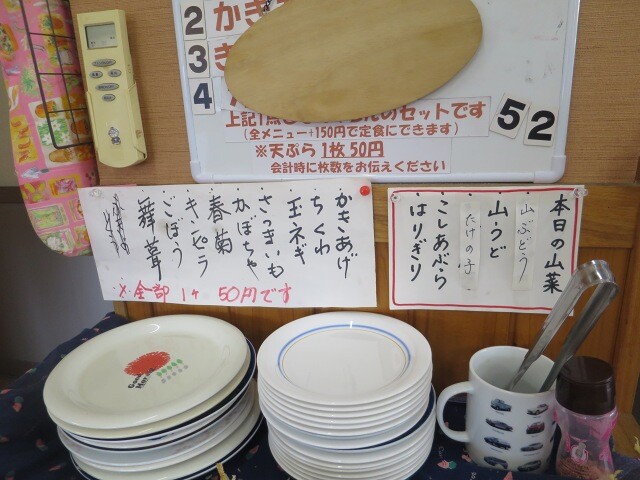 2
かき
3
き
4
上記1点
のセットです
(全メニュー+150円で定食にできます)
※天ぷら1枚50円
会計時に枚数をお伝えください
52
かきあげ
ちくわ
玉ネギ
さつまいも
かぼちゃ
春菊
キンピラ
ごぼう
舞茸
※全部1ヶ 50円です
本日の山菜
山ぶどう
山うど
たけの子
こしあぶら
はりぎり